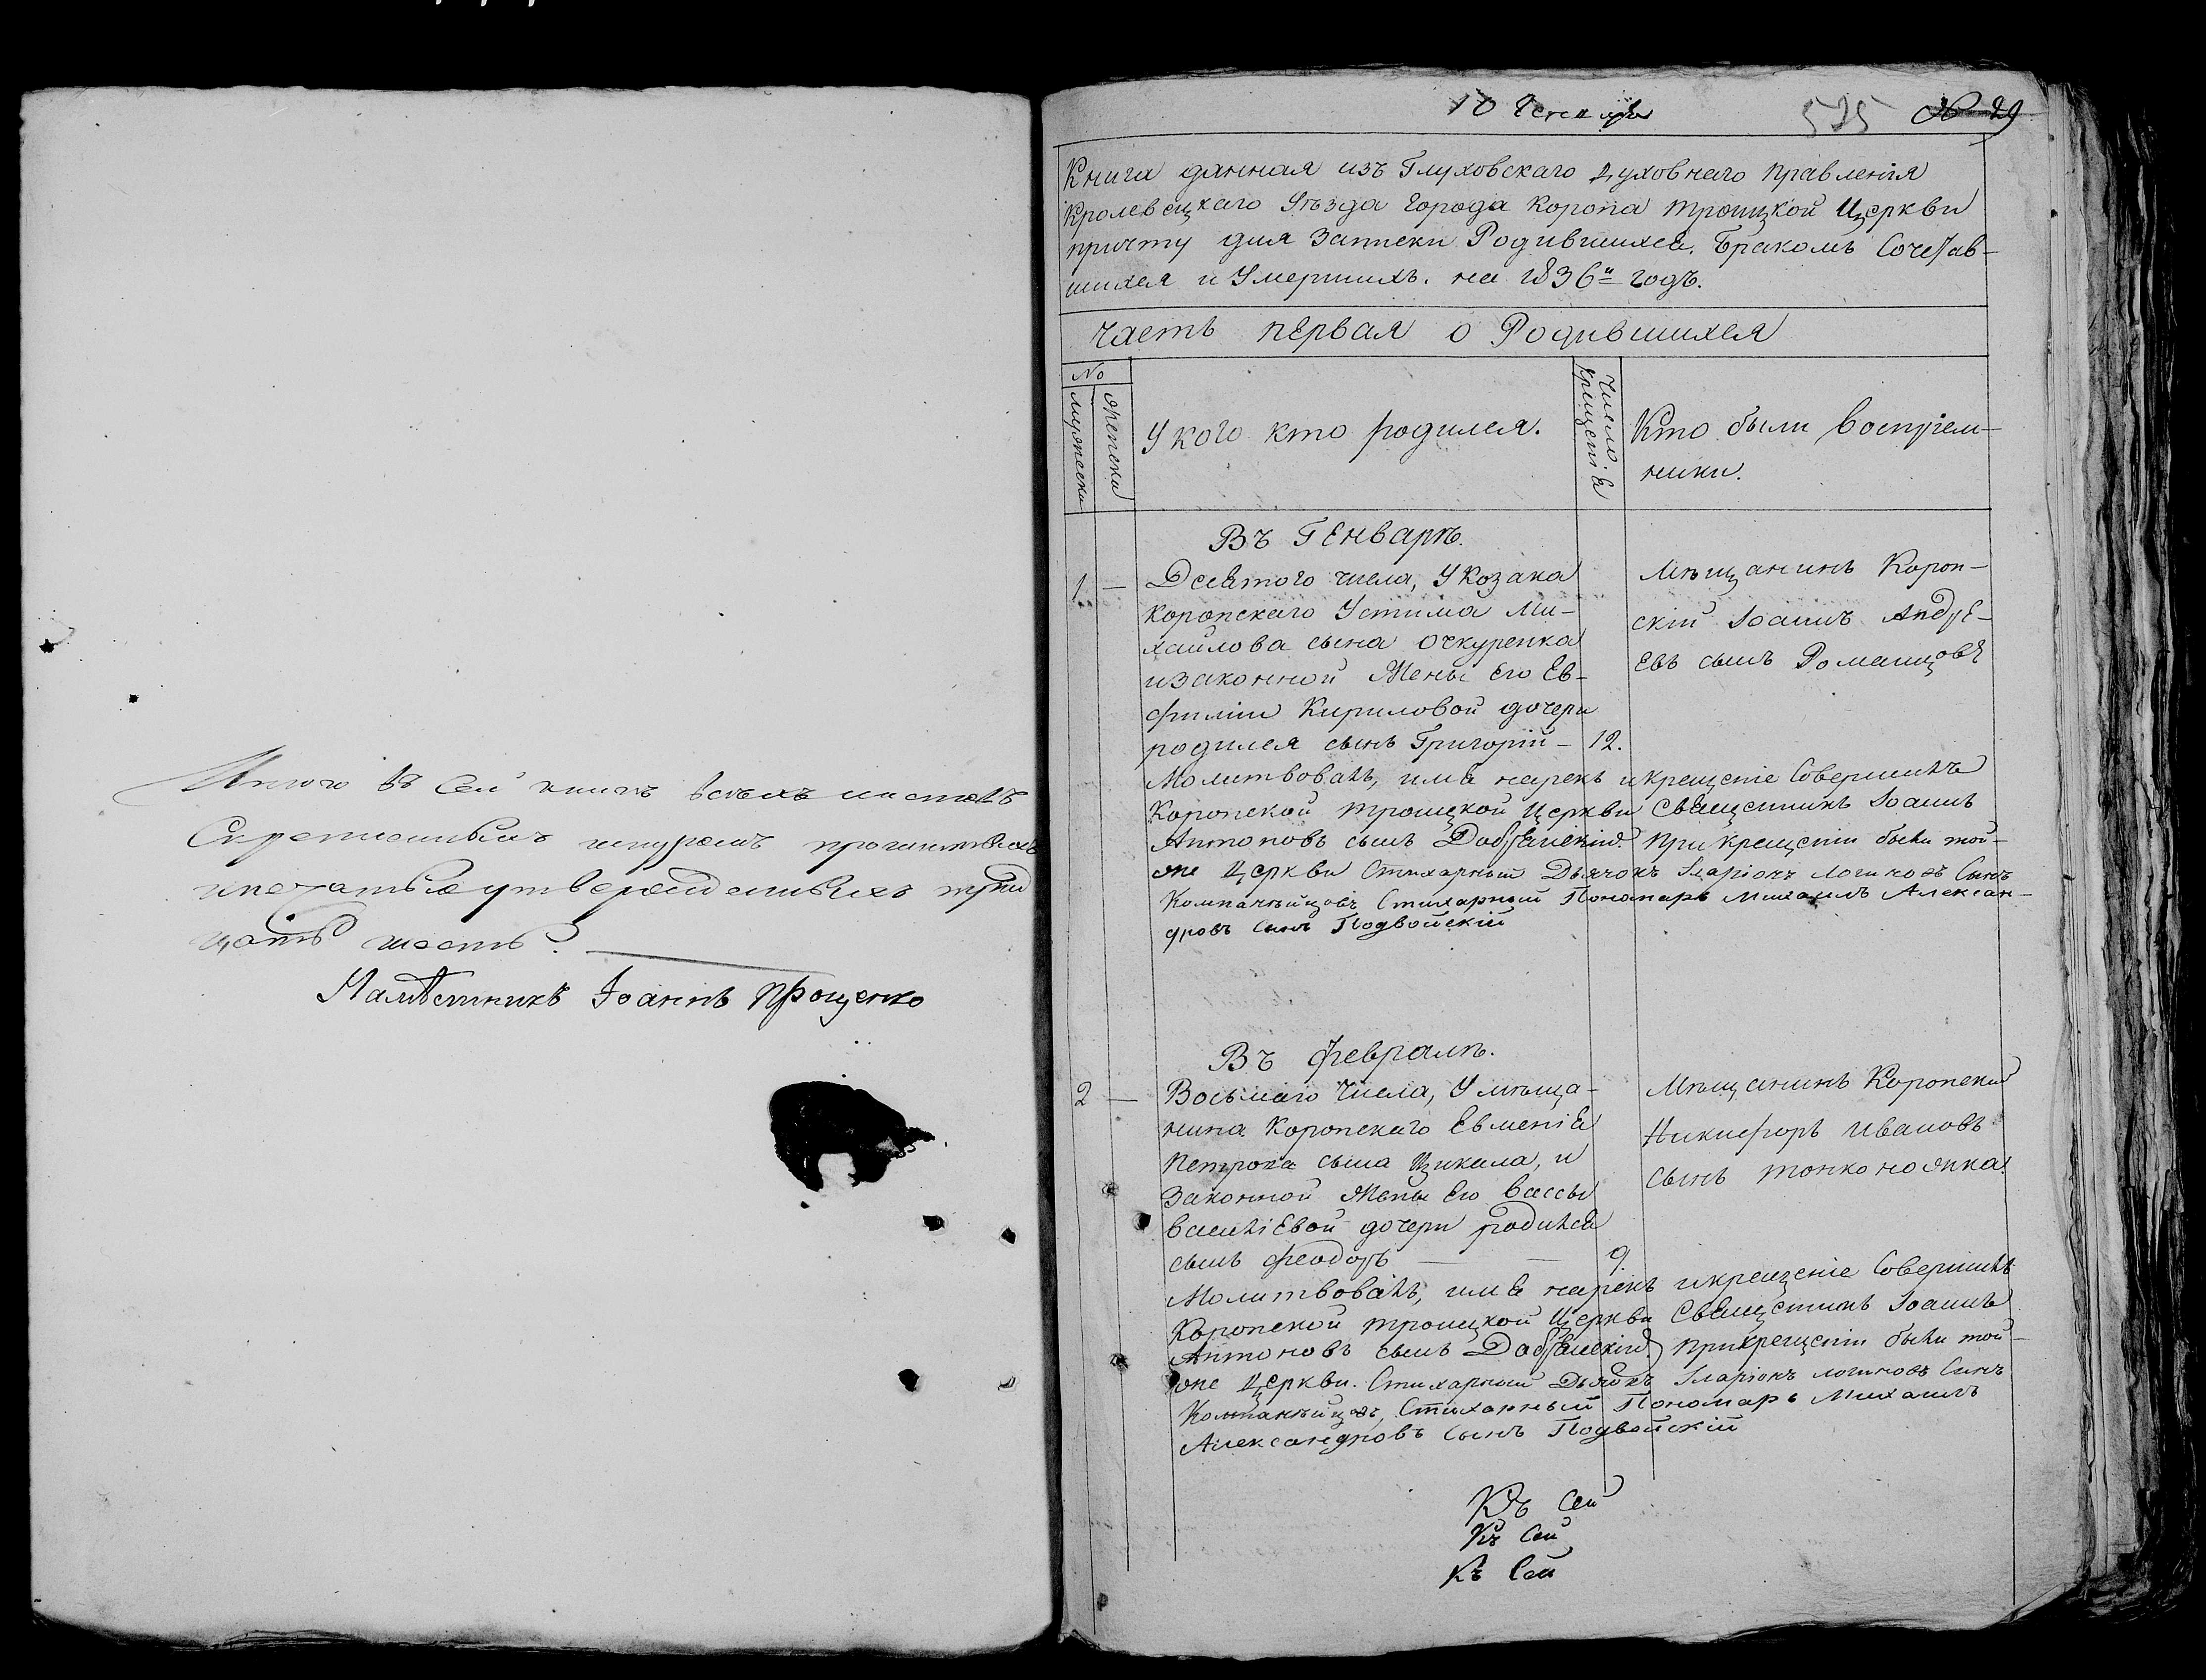 Итого въ сей книгѣ всѣхъ листовъ
Скрепленныхъ шнуромъ прошнтыхъ
и печатью утвержденныхъ трид
цать шесть.
Намѣстникъ Іоаннъ Прощенко
10
525 № 29
Книга данная изъ Глуховскаго Духовнаго Правленія
Кролевецкаго Уѣзда Города Коропа Троицкой Церкви
причту для Записки Родившихся, Бракомъ Сочетав-
шихся и Умершихъ. на 1836й годъ.
Часть первая о Родившихся
№
мужески
женски
У кого кто родился.
Число
крещенія
Кто были Воспріем-
ники.
Въ Генварѣ.
1 — Десятого числа, У Козака
Коропскаго Устима Ми-
хайлова сына Очкуренка
и законной Жены Его Ев-
фиміи Кириловой дочери
родился сынъ Григорій — 12.
Мѣщанинъ Короп-
скій Іоаннъ Андре-
евъ сынъ Романцовъ
Молитвовалъ, имя нарекъ и крещеніе Совершилъ
Коропской Троицкой Церкви Священникъ Іоаннъ
Антоновъ сынъ Добрянскій. При крещеніи были той-
же Церкви Стихарный Дьячокъ Іларіонъ Логиновъ Сынъ
Компанѣйцовъ Стихарный Пономарь Михаилъ Алексан-
дровъ Сынъ Подвойскій
Въ Февралѣ.
2 — Восьмаго Числа, У мѣща-
нина Коропскаго Евменія
Петрова сына Цикала, и
Законной Жены Его Вассы
Василіевой дочери родился
сынъ Феодоръ — — 9
Мѣщанинъ Коропскій
Никифоръ Ивановъ
Сынъ Тонконожка
Молитвовалъ, имя нарекъ и крещеніе Совершилъ
Коропской Троицкой Церкви Священникъ Іоаннъ
Антоновъ сынъ Добрянскій. При крещеніи были той-
же Церкви. Стихарный Дьячокъ Іларіонъ Логиновъ Сынъ
Компанѣйцовъ, Стихарный Пономарь Михаилъ
Александровъ Сынъ Подвойскій
Къ Сей
Къ Сей
Къ Сей